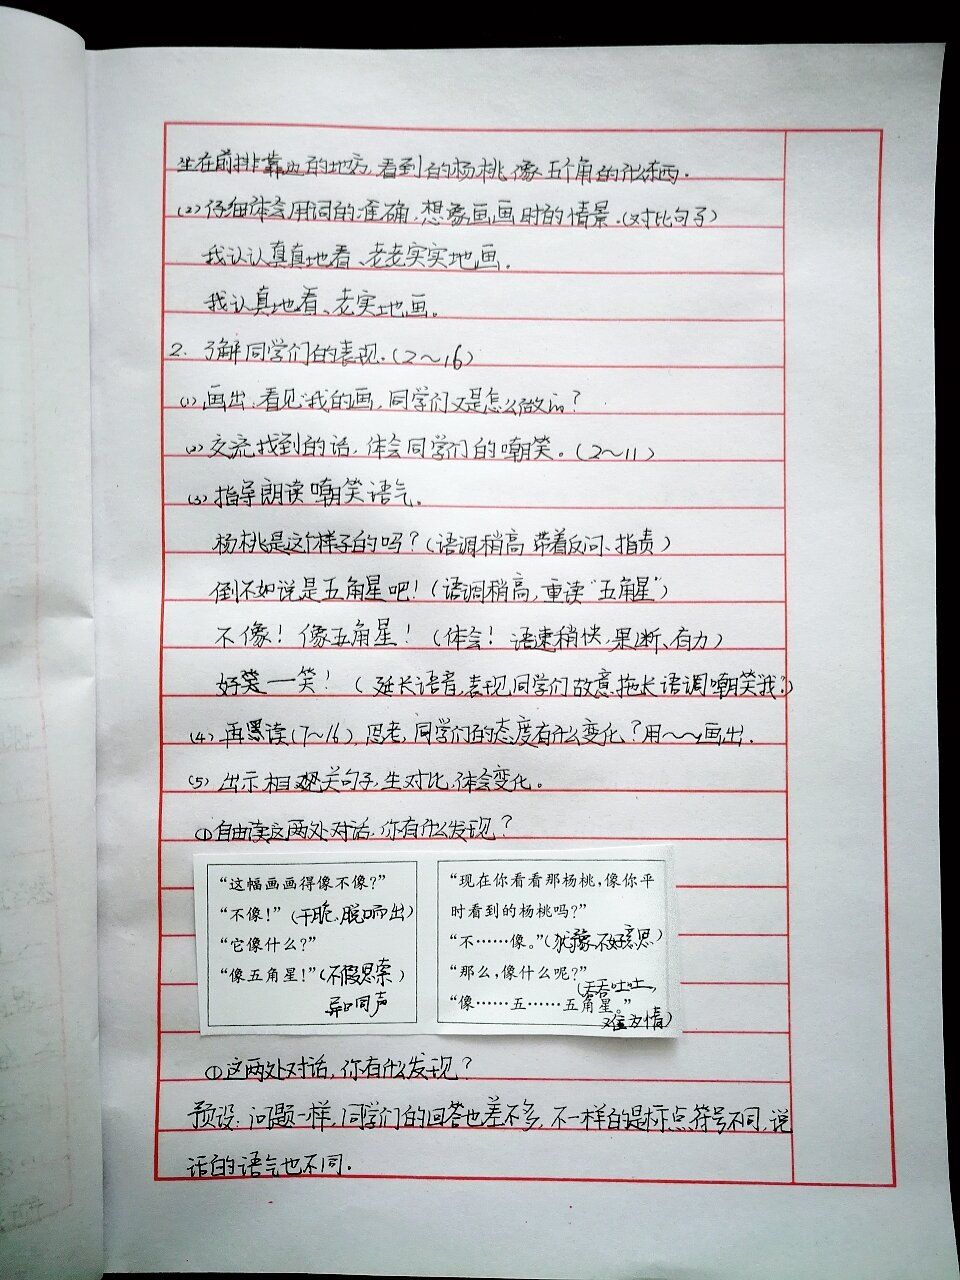 坐在前排靠边的地方,看到的杨桃像五个角的什么东西.
(2)仔细体会用词的准确,想象画画时的情景.(对比句子)
我认认真真地看、老老实实地画.
我认真地看、老实地画。
2. 了解同学们的表现.(2~16)
(1) 画出:看见我的画,同学们又是怎么做的?
(2) 交流找到的话,体会同学们的嘲笑。(2~11)
(3) 指导朗读嘲笑语气.
杨桃是这个样子的吗?(语调稍高 带着反问、指责)
倒不如说是五角星吧!(语调稍高,重读“五角星”)
不像!像五角星!(体会!语速稍快,果断、有力)
好笑一笑!(延长语音,表现同学们故意拖长语调嘲笑我?)
(4) 再默读(7~16),思考,同学们的态度有什么变化?用~~画出.
(5) 出示相关句子,生对比,体会变化。
①自由读这两处对话,你有什么发现?
“这幅画画得像不像?”
“不像!”(干脆、脱口而出)
“它像什么?”
“像五角星!”(不假思索)
异口同声
“现在你看看那杨桃,像你平
时看到的杨桃吗?”
“不……像。”(犹豫、不好意思)
“那么,像什么呢?”
(吞吞吐吐,
“像……五……五角星。”
难为情)
①这两处对话,你有什么发现?
预设:问题一样,同学们的回答也差不多,不一样的是标点符号不同,说
话的语气也不同.